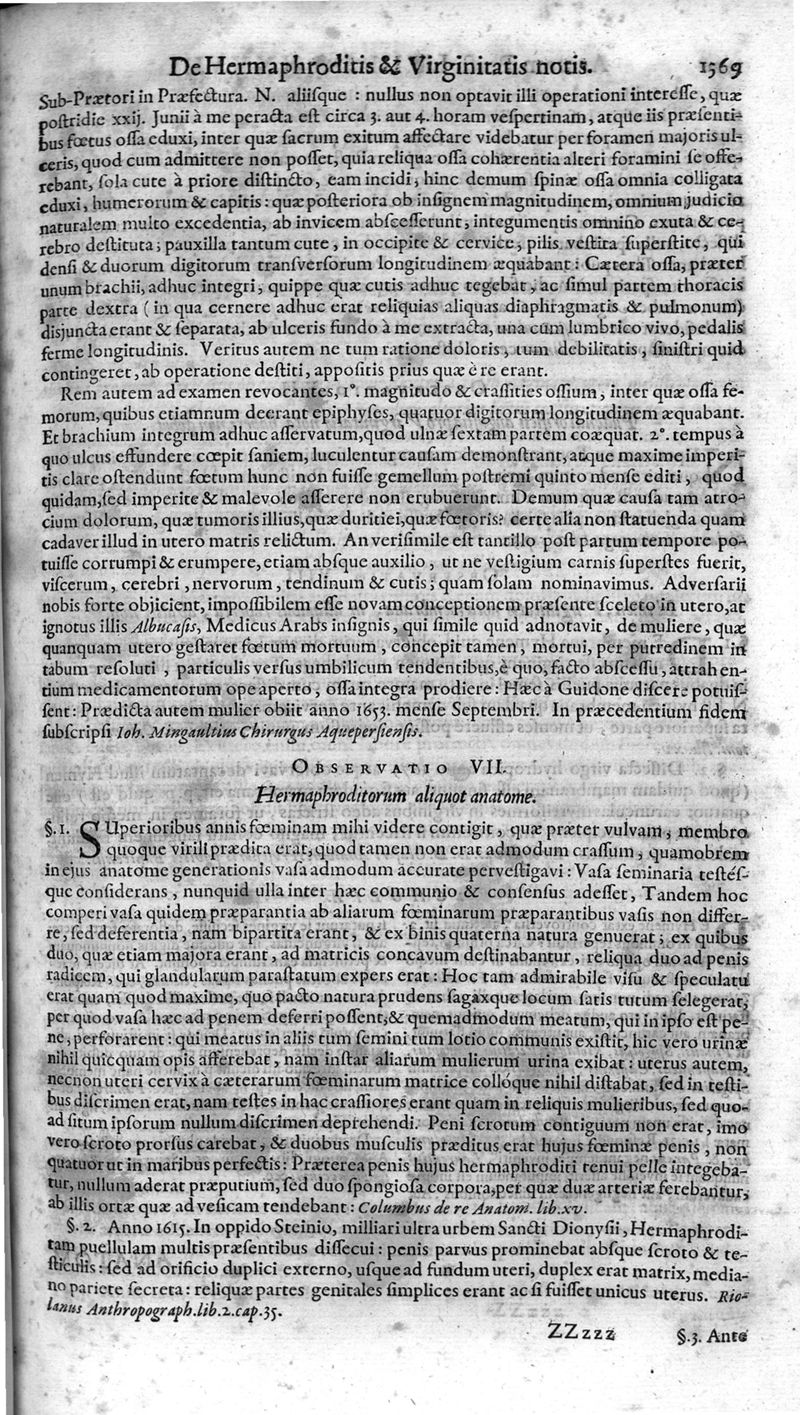 De Hermaphroditis & Virginitatis notis. 1569
Sub-Prætori in Præfectura. N. aliisque : nullus non optavit illi operationi interesse, quæ
postridie xxij. Junii à me peracta est circa 3. aut 4. horam vespertinam, atque iis præsenti-
bus fœtus ossa eduxi, inter quæ sacrum exitum affectare videbatur per foramen majoris ul-
ceris, quod cum admittere non posset, quia reliqua ossa cohærentia alteri foramini se offe-
rebant, sola cute à priore distincto, eam incidi, hinc demum spinæ ossa omnia colligata
eduxi, humerorum & capitis : quæ posteriora ob insignem magnitudinem, omnium judicio
naturalem multo excedentia, ab invicem abscesserunt, integumentis omnino exuta & ce-
rebro destituta; pauxilla tantum cute, in occipite & cervice, pilis vestita superstite, qui
densi & duorum digitorum transversorum longitudinem æquabant : Cætera ossa, præter
unum brachii, adhuc integri, quippe quæ cutis adhuc tegebat, ac simul partem thoracis
parte dextra ( in qua cernere adhuc erat reliquias aliquas diaphragmatis & pulmonum)
disjuncta erant & separata, ab ulceris fundo à me extracta, una cum lumbrico vivo, pedalis
ferme longitudinis. Veritus autem ne tum ratione doloris, tum debilitatis, sinistri quid
contingeret, ab operatione destiti, appositis prius quæ è re erant.
Rem autem ad examen revocantes, 1°. magnitudo & crassities ossium, inter quæ ossa fe-
morum, quibus etiamnum deerant epiphyses, quatuor digitorum longitudinem æquabant.
Et brachium integrum adhuc asservatum, quod ulnæ sextam partem coæquat. 2°. tempus à
quo ulcus effundere cœpit saniem, luculentur causam demonstrant, atque maxime imperi-
tis clare ostendunt fœtum hunc non fuisse gemellum postremi quinto mense editi, quod
quidam, sed imperite & malevole asserere non erubuerunt. Demum quæ causa tam atro-
cium dolorum, quæ tumoris illius, quæ duritiei, quæ fœtoris? certe alia non statuenda quam
cadaver illud in utero matris relictum. An verisimile est tantillo post partum tempore po-
tuisse corrumpi & erumpere, etiam absque auxilio, ut ne vestigium carnis superstes fuerit,
viscerum, cerebri, nervorum, tendinum & cutis; quam solam nominavimus. Adversarii
nobis forte objicient, impossibilem esse novam conceptionem præsente sceleto in utero, at
ignotus illis Albucasis, Medicus Arabs insignis, qui simile quid adnotavit, de muliere, quæ
quanquam utero gestaret fœtum mortuum, concepit tamen, mortui, per putredinem in
tabum resoluti, particulis versus umbilicum tendentibus, è quo, facto abscessu, attrahen-
tium medicamentorum ope aperto, ossa integra prodiere : Hæc à Guidone discere potuis-
sent : Prædicta autem mulier obiit anno 1653. mense Septembri. In præcedentium fidem
subscripsi Ioh. Mingaultius Chirurgus Aquepersiensis.
OBSERVATIO VII.
Hermaphroditorum aliquot anatome.
§. 1. SUperioribus annis fœminam mihi videre contigit, quæ præter vulvam, membro
quoque virili prædita erat, quod tamen non erat admodum crassum, quamobrem
in ejus anatome generationis vasa admodum accurate pervestigavi : Vasa seminaria testés-
que considerans, nunquid ulla inter hæc communio & consensus adesset, Tandem hoc
comperi vasa quidem præparantia ab aliarum fœminarum præparantibus vasis non differ-
re, sed deferentia, nam bipartita erant, & ex binis quaterna natura genuerat; ex quibus
duo, quæ etiam majora erant, ad matricis concavum destinabantur, reliqua duo ad penis
radicem, qui glandularum parastatum expers erat : Hoc tam admirabile visu & speculatu
erat quam quod maxime, quo pacto natura prudens sagaxque locum satis tutum selegerat,
per quod vasa hæc ad penem deferri possent, & quemadmodum meatum, qui in ipso est pe-
ne, perforarent : qui meatus in aliis tum semini tum lotio communis existit, hic vero urinæ
nihil quicquam opis afferebat, nam instar aliarum mulierum urina exibat : uterus autem,
necnon uteri cervix à cæterarum fœminarum matrice collóque nihil distabat, sed in testi-
bus discrimen erat, nam testes in hac crassiores erant quam in reliquis mulieribus, sed quo-
ad situm ipsorum nullum discrimen deprehendi. Peni scrotum contiguum non erat, imo
vero scroto prorsus carebat, & duobus musculis præditus erat hujus fœminæ penis, non
quatuor ut in maribus perfectis : Præterea penis hujus hermaphroditi tenui pelle integeba-
tur, nullum aderat præputium, sed duo spongiosa corpora, per quæ duæ arteriæ ferebantur,
ab illis ortæ quæ ad vesicam tendebant : Columbus de re Anatom. lib. xv.
§. 2. Anno 1615. In oppido Steinio, milliari ultra urbem Sancti Dionysii, Hermaphrodi-
tam puellulam multis præsentibus dissecui : penis parvus prominebat absque scroto & te-
sticulis : sed ad orificio duplici externo, usque ad fundum uteri, duplex erat matrix, media-
no pariete secreta : reliquæ partes genitales simplices erant ac si fuisset unicus uterus. Rio-
lanus Anthropograph. lib. 2. cap. 35.
ZZzzz §. 3. Ante